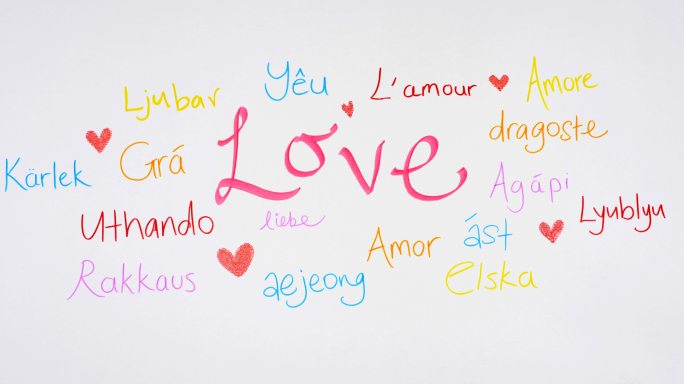 Yêu
L'amour
Amore
Ljubav
Love
dragoste
Grá
Kärlek
Agápi
Lyublyu
Uthando
liebe
Amor
ást
Rakkaus
aejeong
elska